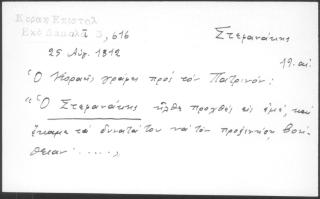 Κοραη Επιστολ
Εκδ Δαμαλᾶ 3, 616
Στεφανάκης
25 Αὐγ. 1812
19. αἰ.
Ὁ Κοραῆς γράφει πρὸς τὸν Πατρινόν:
"Ὁ Στεφανάκης ἦλθε προχθὲς εἰς ἐμέ, καὶ
ἔκαμα τὰ δυνατά του νὰ τὸν προξενήσω βοή
θειαν .....,